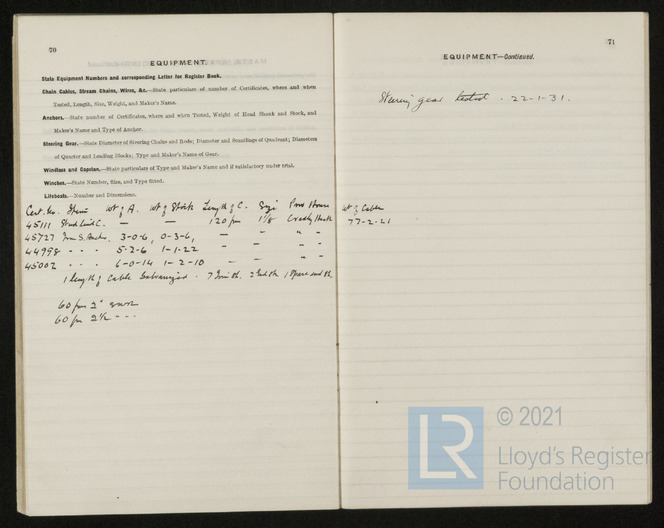 70
EQUIPMENT.
State Equipment Numbers and corresponding Letter for Register Book.
Chain Cables, Stream Chains, Wires, &c.—State particulars of number of Certificates, where and when
Tested, Length, Size, Weight, and Maker's Name.
Anchors.—State number of Certificates, where and when Tested, Weight of Head Shank and Stock, and
Maker's Name and Type of Anchor.
Steering Gear.—State Diameter of Steering Chains and Rods; Diameter and Scantlings of Quadrant; Diameters
of Quarter and Leading Blocks; Type and Maker's Name of Gear.
Windlass and Capstan.—State particulars of Type and Maker's Name and if satisfactory under trial.
Winches.—State Number, Size, and Type fitted.
Lifeboats.—Number and Dimensions.
Cert. No. Item wt of A. wt of Stock Length of C. Size Prov House wt of Cable
45111 Stud Link C. — — 120 fm 1 7/8 77-2-21
45727 3-0-6, 0-3-6, — — " "
44998 - - - 5-2-6 1-1-22 - - " "
45002 - - - 6-0-14 1-2-10 - - " "
1 length of Cable Galvanized
60 fm 2"
60 fm 2½ - - -
71
EQUIPMENT—Continued.
Steering gear tested . 22-1-31.
LR
© 2021
Lloyd's Register
Foundation